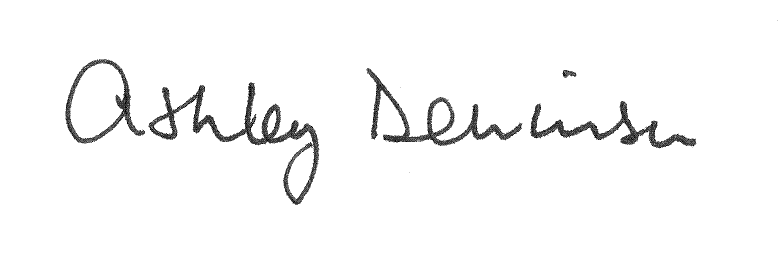 Ashley Dennison